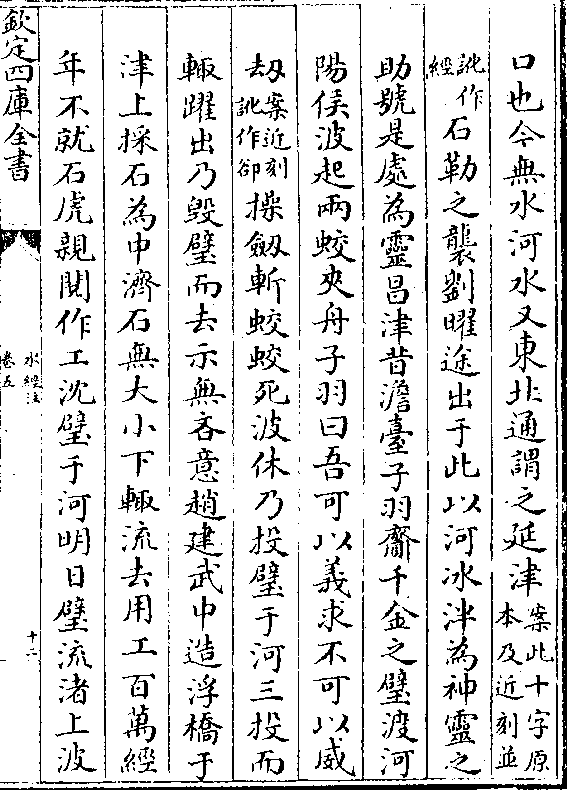 口也今無水河水又東北通謂之延津案此十字原本及近刻並
訛作經石勒之襲劉曜途出于此以河冰泮為神靈之
助號是處為靈昌津昔澹臺子羽齎千金之璧渡河
陽侯波起兩蛟夾舟子羽曰吾可以義求不可以威
劫案近刻訛作卻操劒斬蛟蛟死波休乃投璧于河三投而
輙躍出乃毀璧而去示無吝意趙建武中造浮橋于
津上採石為中濟石無大小下輙流去用工百萬經
年不就石虎親閱作工沈璧于河明日璧流渚上波
欽定四庫全書
水經注
卷五
十二